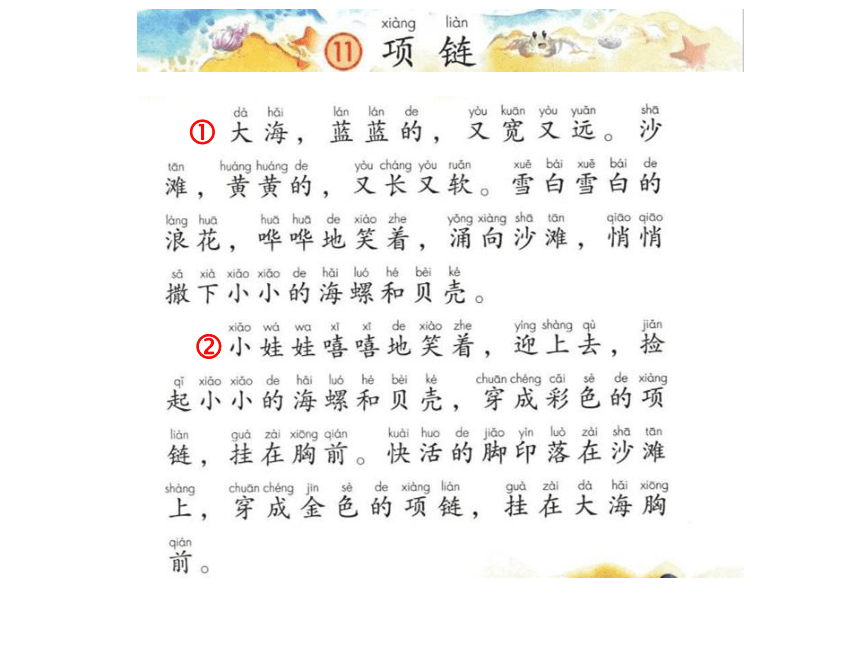 xiàng liàn
11 项 链
dà hǎi lán lán de yòu kuān yòu yuǎn shā
① 大海，蓝蓝的，又宽又远。沙
tān huáng huáng de yòu cháng yòu ruǎn xuě bái xuě bái de
滩，黄黄的，又长又软。雪白雪白的
làng huā huā huā de xiào zhe yǒng xiàng shā tān qiāo qiāo
浪花，哗哗地笑着，涌向沙滩，悄悄
sǎ xià xiǎo xiǎo de hǎi luó hé bèi ké
撒下小小的海螺和贝壳。
xiǎo wá wa xī xī de xiào zhe yíng shàng qù jiǎn
②小娃娃嘻嘻地笑着，迎上去，捡
qǐ xiǎo xiǎo de hǎi luó hé bèi ké chuān chéng cǎi sè de xiàng
起小小的海螺和贝壳，穿成彩色的项
liàn guà zài xiōng qián kuài huo de jiǎo yìn luò zài shā tān
链，挂在胸前。快活的脚印落在沙滩
shàng chuān chéng jīn sè de xiàng liàn guà zài dà hǎi xiōng
上，穿成金色的项链，挂在大海胸
qián
前。